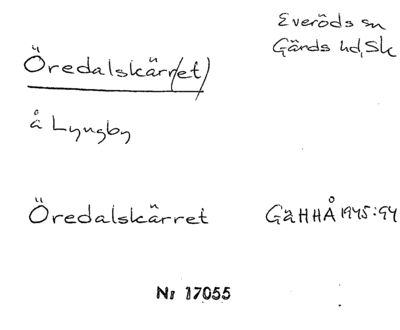 Everöds sn
Gärds hd, Sk
Öredalskärr(et)
å Lyngby
Öredalskärret GäHHÅ 1945:94
Nr 17055